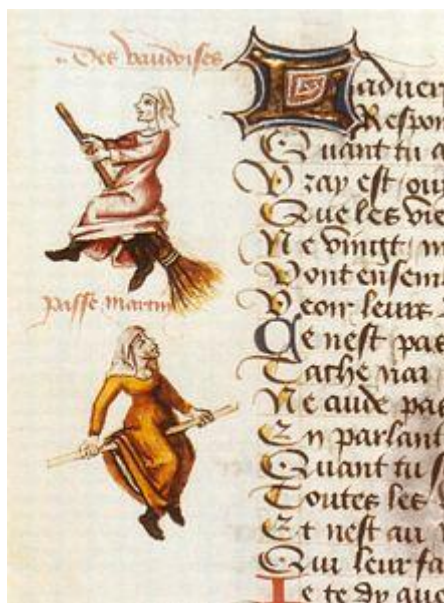 Des vaudoises
passe martin
Laduer
Respon
Quant tu a
Vray est ou
Que les vie
Ne vingt m
Vont ensem
Veoir leurs
Ce nest pas
Tache nar
Ne aude pas
En parlant
Quant tu
Toutes les
Et nest au
Qui leur fa
Ie te dy que